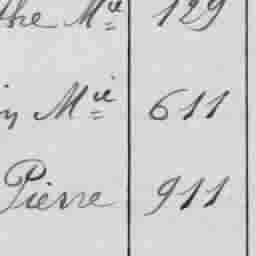 the Mie 129
in Mie 611
Pierre 911